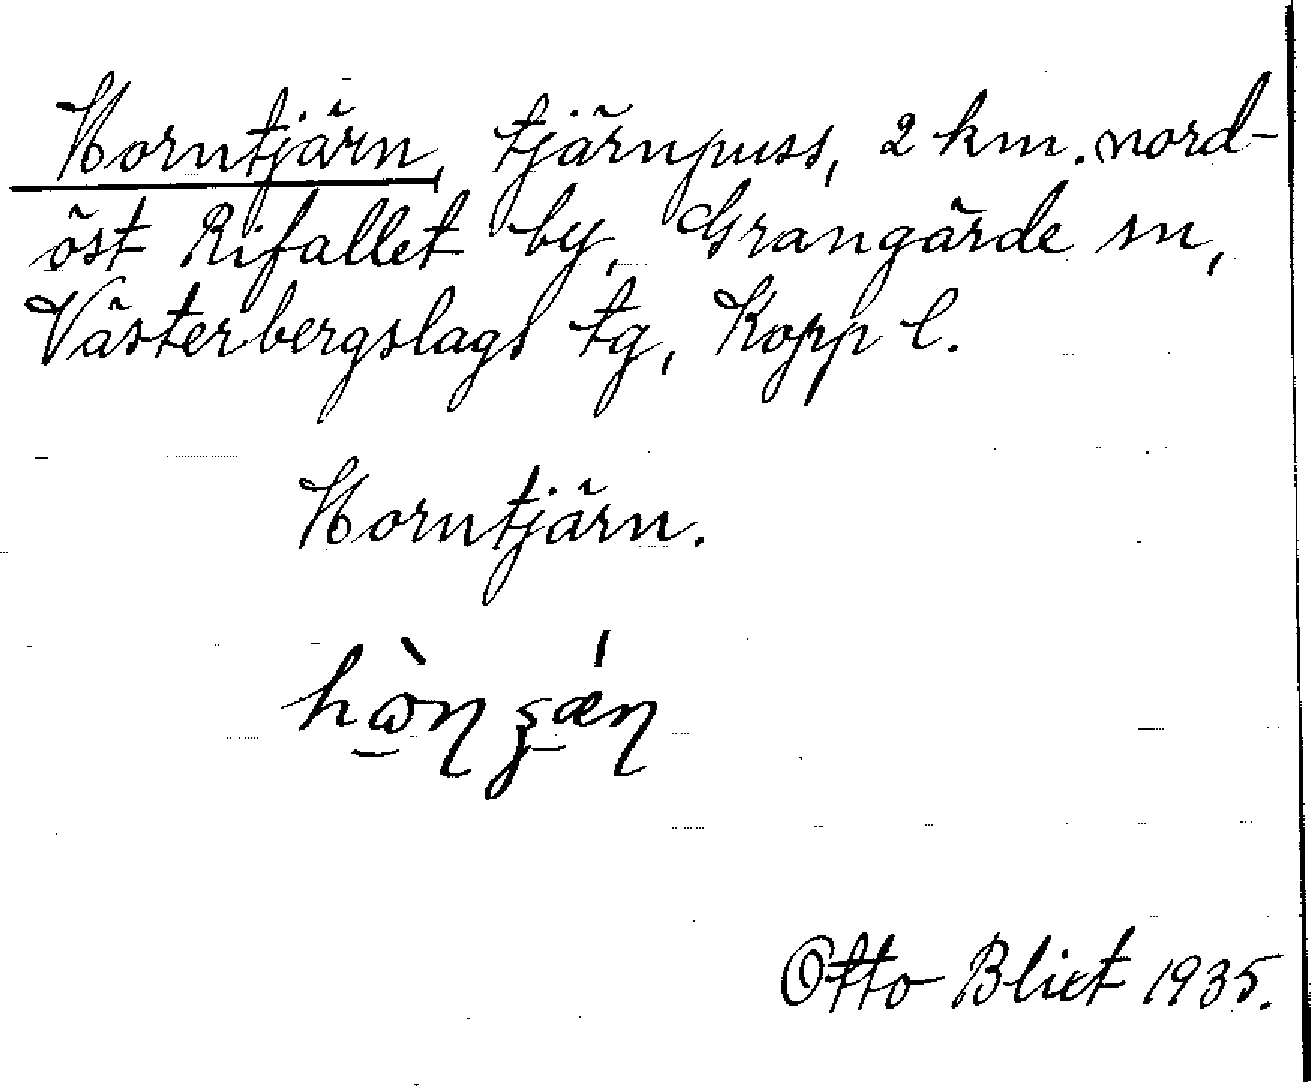 Horntjärn, tjärnpuss, 2 km. nord-
öst Rifallet by, Grangärde sn,
Västerbergslags tg, Kopp l.
Horntjärn.
Otto Blixt 1935.